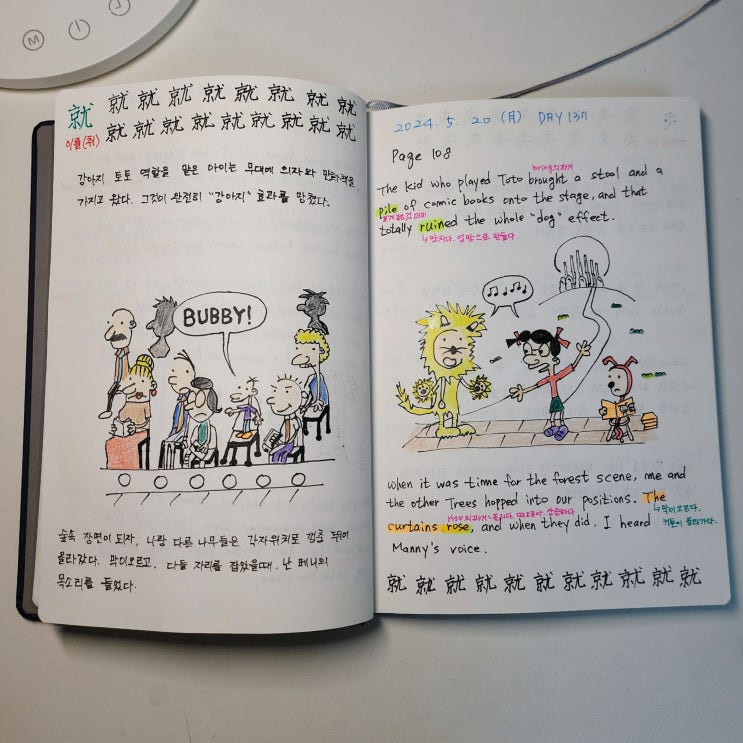 M
就 就 就 就 就 就 就 就 就
이룰(취) 就 就 就 就 就 就 就 就 就
강아지 토토 역할을 맡은 아이는 무대에 의자와 만화책을
가지고 왔다. 그것이 완전히 "강아지" 효과를 망쳤다.
BUBBY!
숲속 장면이 되자, 나랑 다른 나무들은 각자위치로 껑충 뛰어
올라갔다. 막이오르고, 다들 자리를 잡았을때, 난 매니의
목소리를 들었다.
2024. 5. 20 (月) DAY 137
Page 108
bring의과거
The kid who played Toto brought a stool and a
pile of comic books onto the stage, and that
더미
totally ruined the whole "dog" effect.
↳망치다. 엉망으로 만들다.
when it was time for the forest scene, me and
the other Trees hopped into our positions. The
rise의과거 떠오르다. 상승하다
↳막이오르다.
curtains rose, and when they did. I heard
커튼이 올라가다.
Manny's voice.
就 就 就 就 就 就 就 就 就 就 就